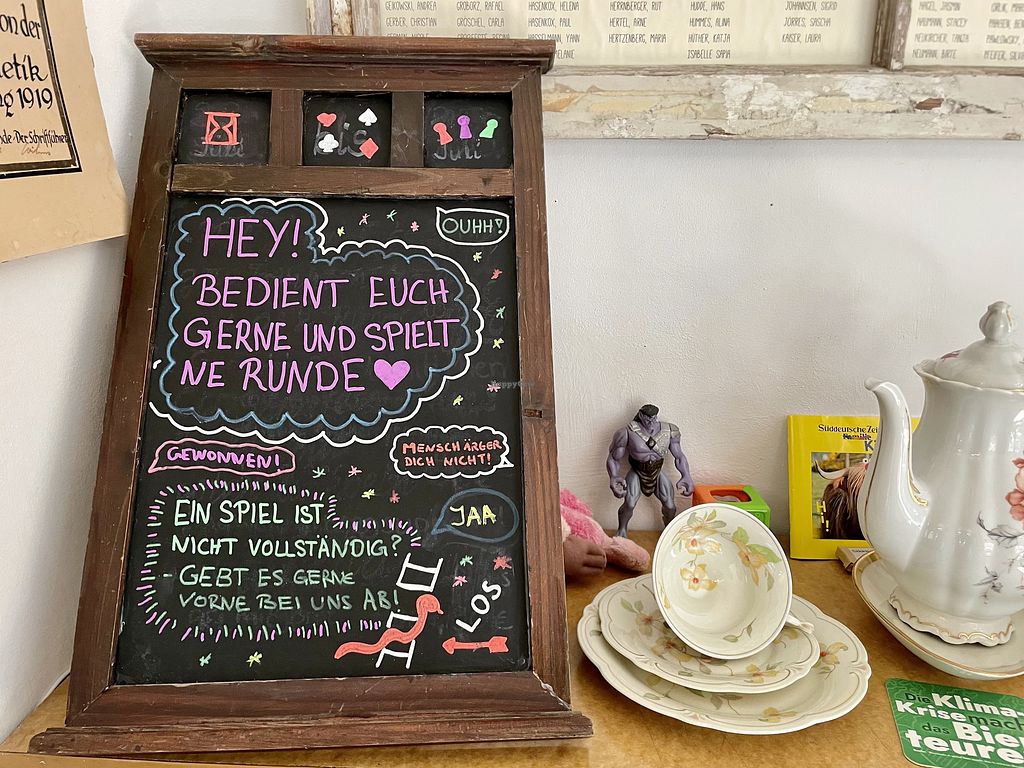 on der
etik
g 1919
GEIKOWSKI, ANDREA
GRÖBARZ, RAFAEL
HASENKOX, HELENA
HERRNBERGER, RUT
HUDDE, HANS
JOHANNSEN, SIGRID
GERBER, CHRISTIAN
GRÖSCHEL, CARLA
HASENKOX, PAUL
HERTEL, ARNE
HUMMES, ALINA
JÖRRES, SASCHA
HASSELMANN, YANN
HERTZENBERG, MARIA
HÜTHER, KATJA
KAISER, LAURA
ISABELLE SAPIA
NAGEL, JASMIN
NAUMANN, STACEY
NEUKIRCHER, TANITA
NEUMANN, BIRTE
PFEIFER, SILVI
HEY!
BEDIENT EUCH
GERNE UND SPIELT
NE RUNDE
OUHH!
GEWONNEN!
MENSCH ÄRGER
DICH NICHT!
EIN SPIEL IST
NICHT VOLLSTÄNDIG?
- GEBT ES GERNE
VORNE BEI UNS AB!
JAA
LOS
Süddeutsche Zei
Familie
HappyCow
Die Klima
Krise mach
das Bier
teure